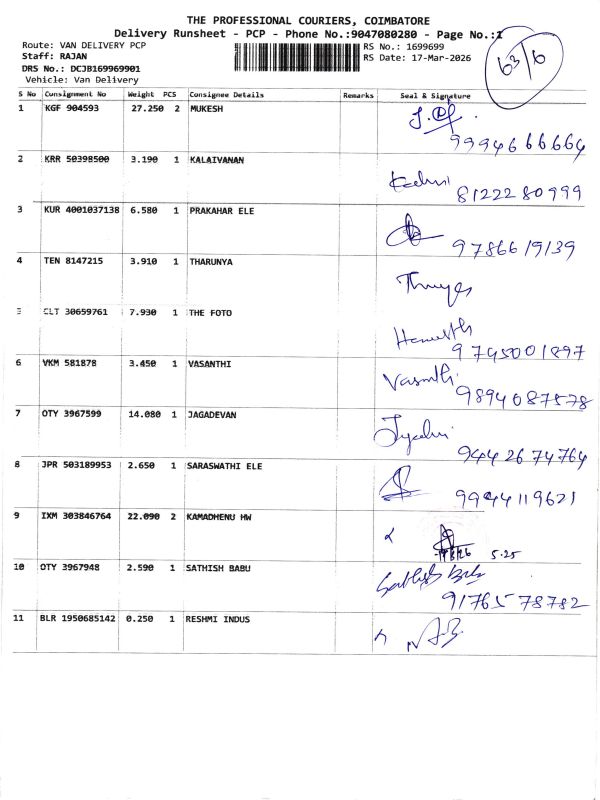 THE PROFESSIONAL COURIERS, COIMBATORE
Delivery Runsheet - PCP - Phone No.:9047080280 - Page No.:1
Route: VAN DELIVERY PCP
RS No.: 1699699
63/6
Staff: RAJAN
RS Date: 17-Mar-2026
DRS No.: DCJB169969901
Vehicle: Van Delivery
S No Consignment No Weight PCS Consignee Details Remarks Seal & Signature
1 KGF 904593 27.250 2 MUKESH
9994666664
2 KRR 50398500 3.190 1 KALAIVANAN
8122280999
3 KUR 4001037138 6.580 1 PRAKAHAR ELE
9786619139
4 TEN 8147215 3.910 1 THARUNYA
5 CLT 30659761 7.930 1 THE FOTO
9745001897
6 VKM 581878 3.450 1 VASANTHI
Vasanthi
9894087578
7 OTY 3967599 14.080 1 JAGADEVAN
9442674764
8 JPR 503189953 2.650 1 SARASWATHI ELE
9944119621
9 IXM 303846764 22.090 2 KAMADHENU HW
5.25
10 OTY 3967948 2.590 1 SATHISH BABU
Sathish Babu
9176578782
11 BLR 1950685142 0.250 1 RESHMI INDUS